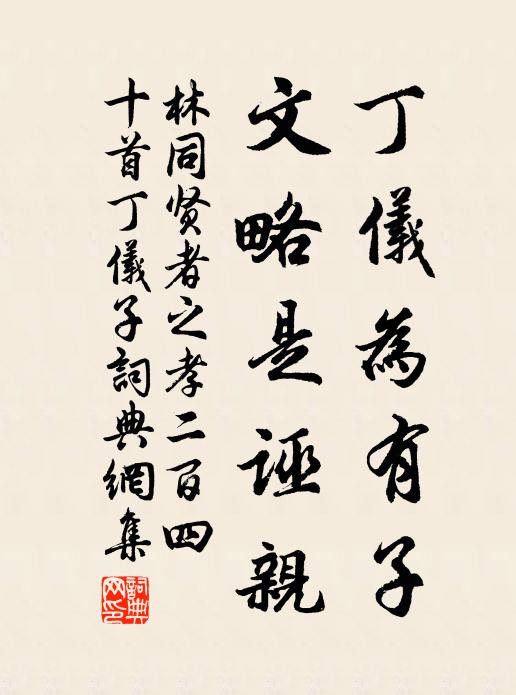 丁儀為有子
文略是誣親
林同贤者之孝二百四
十首丁儀子詞典網集
詞典网印